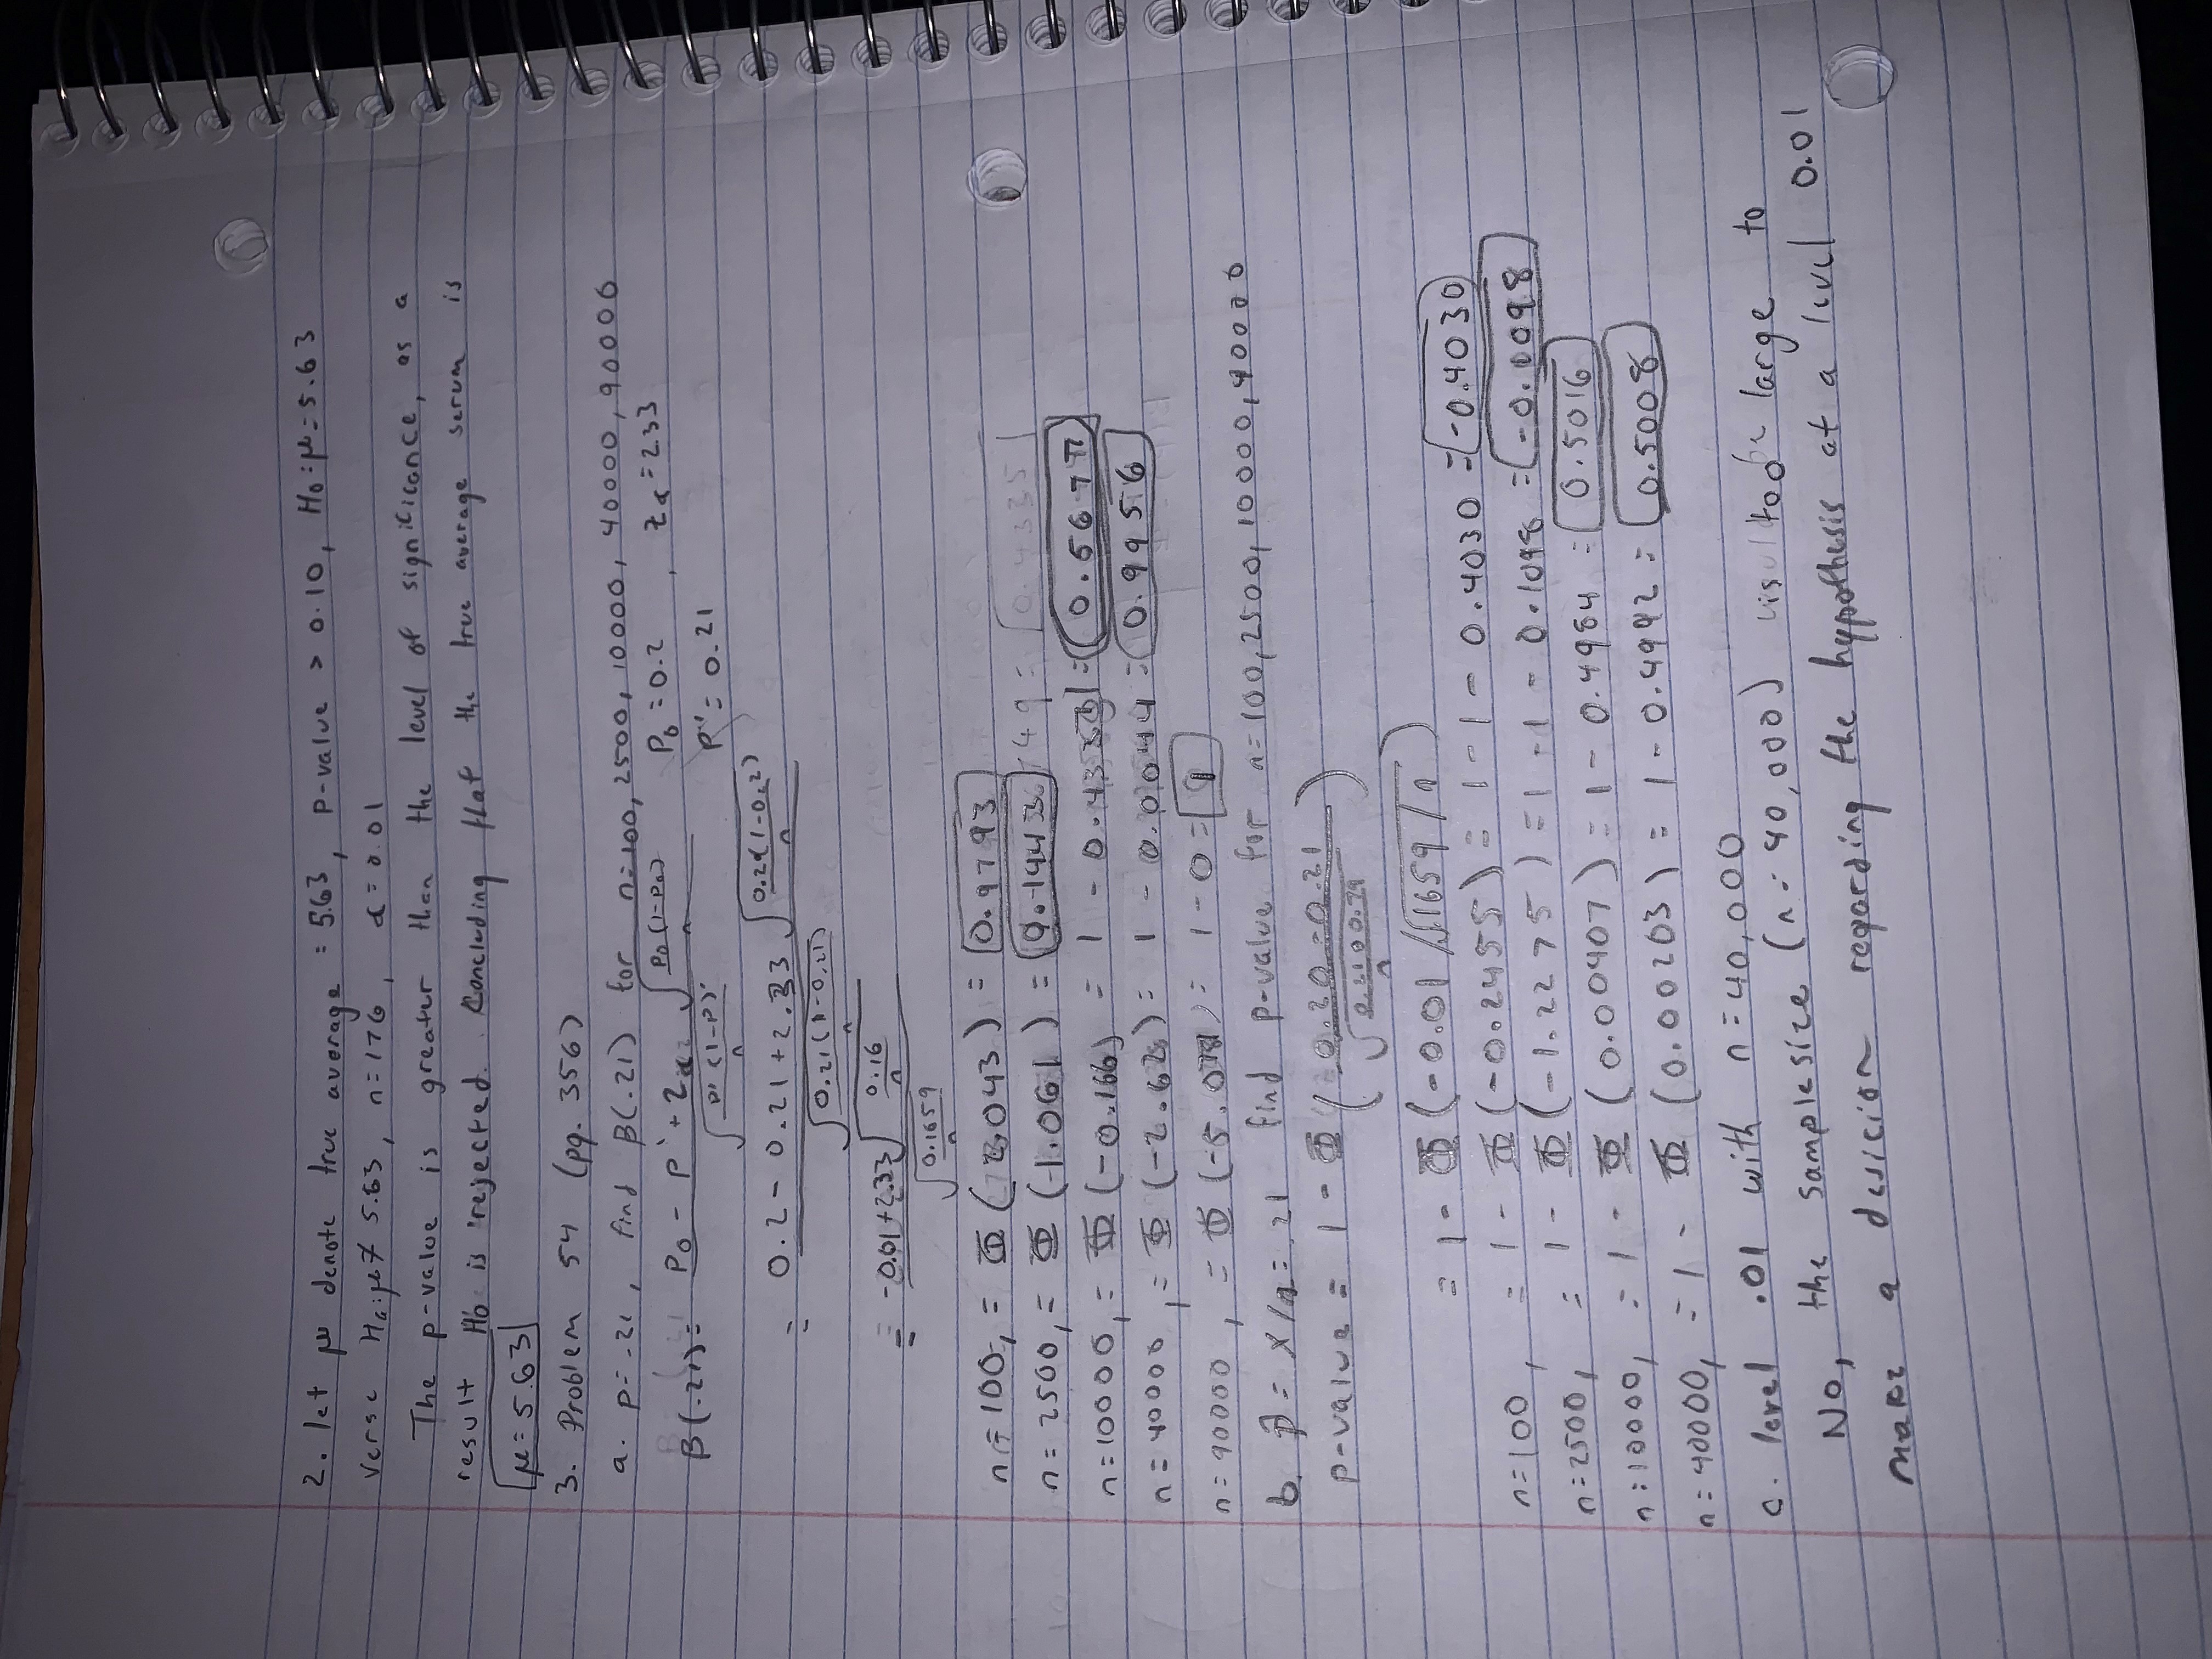 2. let μ denote true average = 5.63, p-value > 0.10, H₀:μ=5.63
verse Hₐ:μ≠ 5.63, n=176, α=0.01
The p-value is greater than the level of significance, as a
result H₀ is rejected. Concluding that the true average serum is
μ=5.63
3. Problem 54 (pg. 356)
a. p=.21, find β(.21) for n=100, 2500, 10000, 40000, 90000
β(.21)= (P₀ - p' + Z_α √(P₀(1-P₀)/n)) / √(p'(1-p)'/n) P₀=0.2, Z_α=2.33
p'=0.21
= (0.2-0.21+2.33 √(0.2(1-0.2)/n)) / √(0.21(1-0.21)/n)
= (-0.01+2.33√(0.16/n)) / √(0.1659/n)
n=100, = Φ(2.043) = 0.9793
n=2500, = Φ(1.061) = 0.1443
n=10000, = Φ(-0.166) = 1 - 0.4333 = 0.5677
n=40000, = Φ(-2.62) = 1 - 0.0044 = 0.9956
n=90000, = Φ(-5.078) = 1-0 = 1
b. p̂ = x/n = .21 find p-value for n=100,2500,10000,40000
p-value = 1 - Φ((0.20-0.21) / √(0.21•0.79/n))
= 1 - Φ(-0.01/√1659/n)
n=100, = 1 - Φ(-0.2455) = 1-1-0.4030 = -0.4030
n=2500, = 1 - Φ(-1.2275) = 1-1-0.1098 = -0.1098
n=10000, = 1 - Φ(0.00407) = 1-0.4984 = 0.5016
n=40000, = 1 - Φ(0.00203) = 1-0.4992 = 0.5008
c. level .01 with n=40,000
No, the sample size (n=40,000) is too large to
make a desicion regarding the hypothesis at a level 0.01